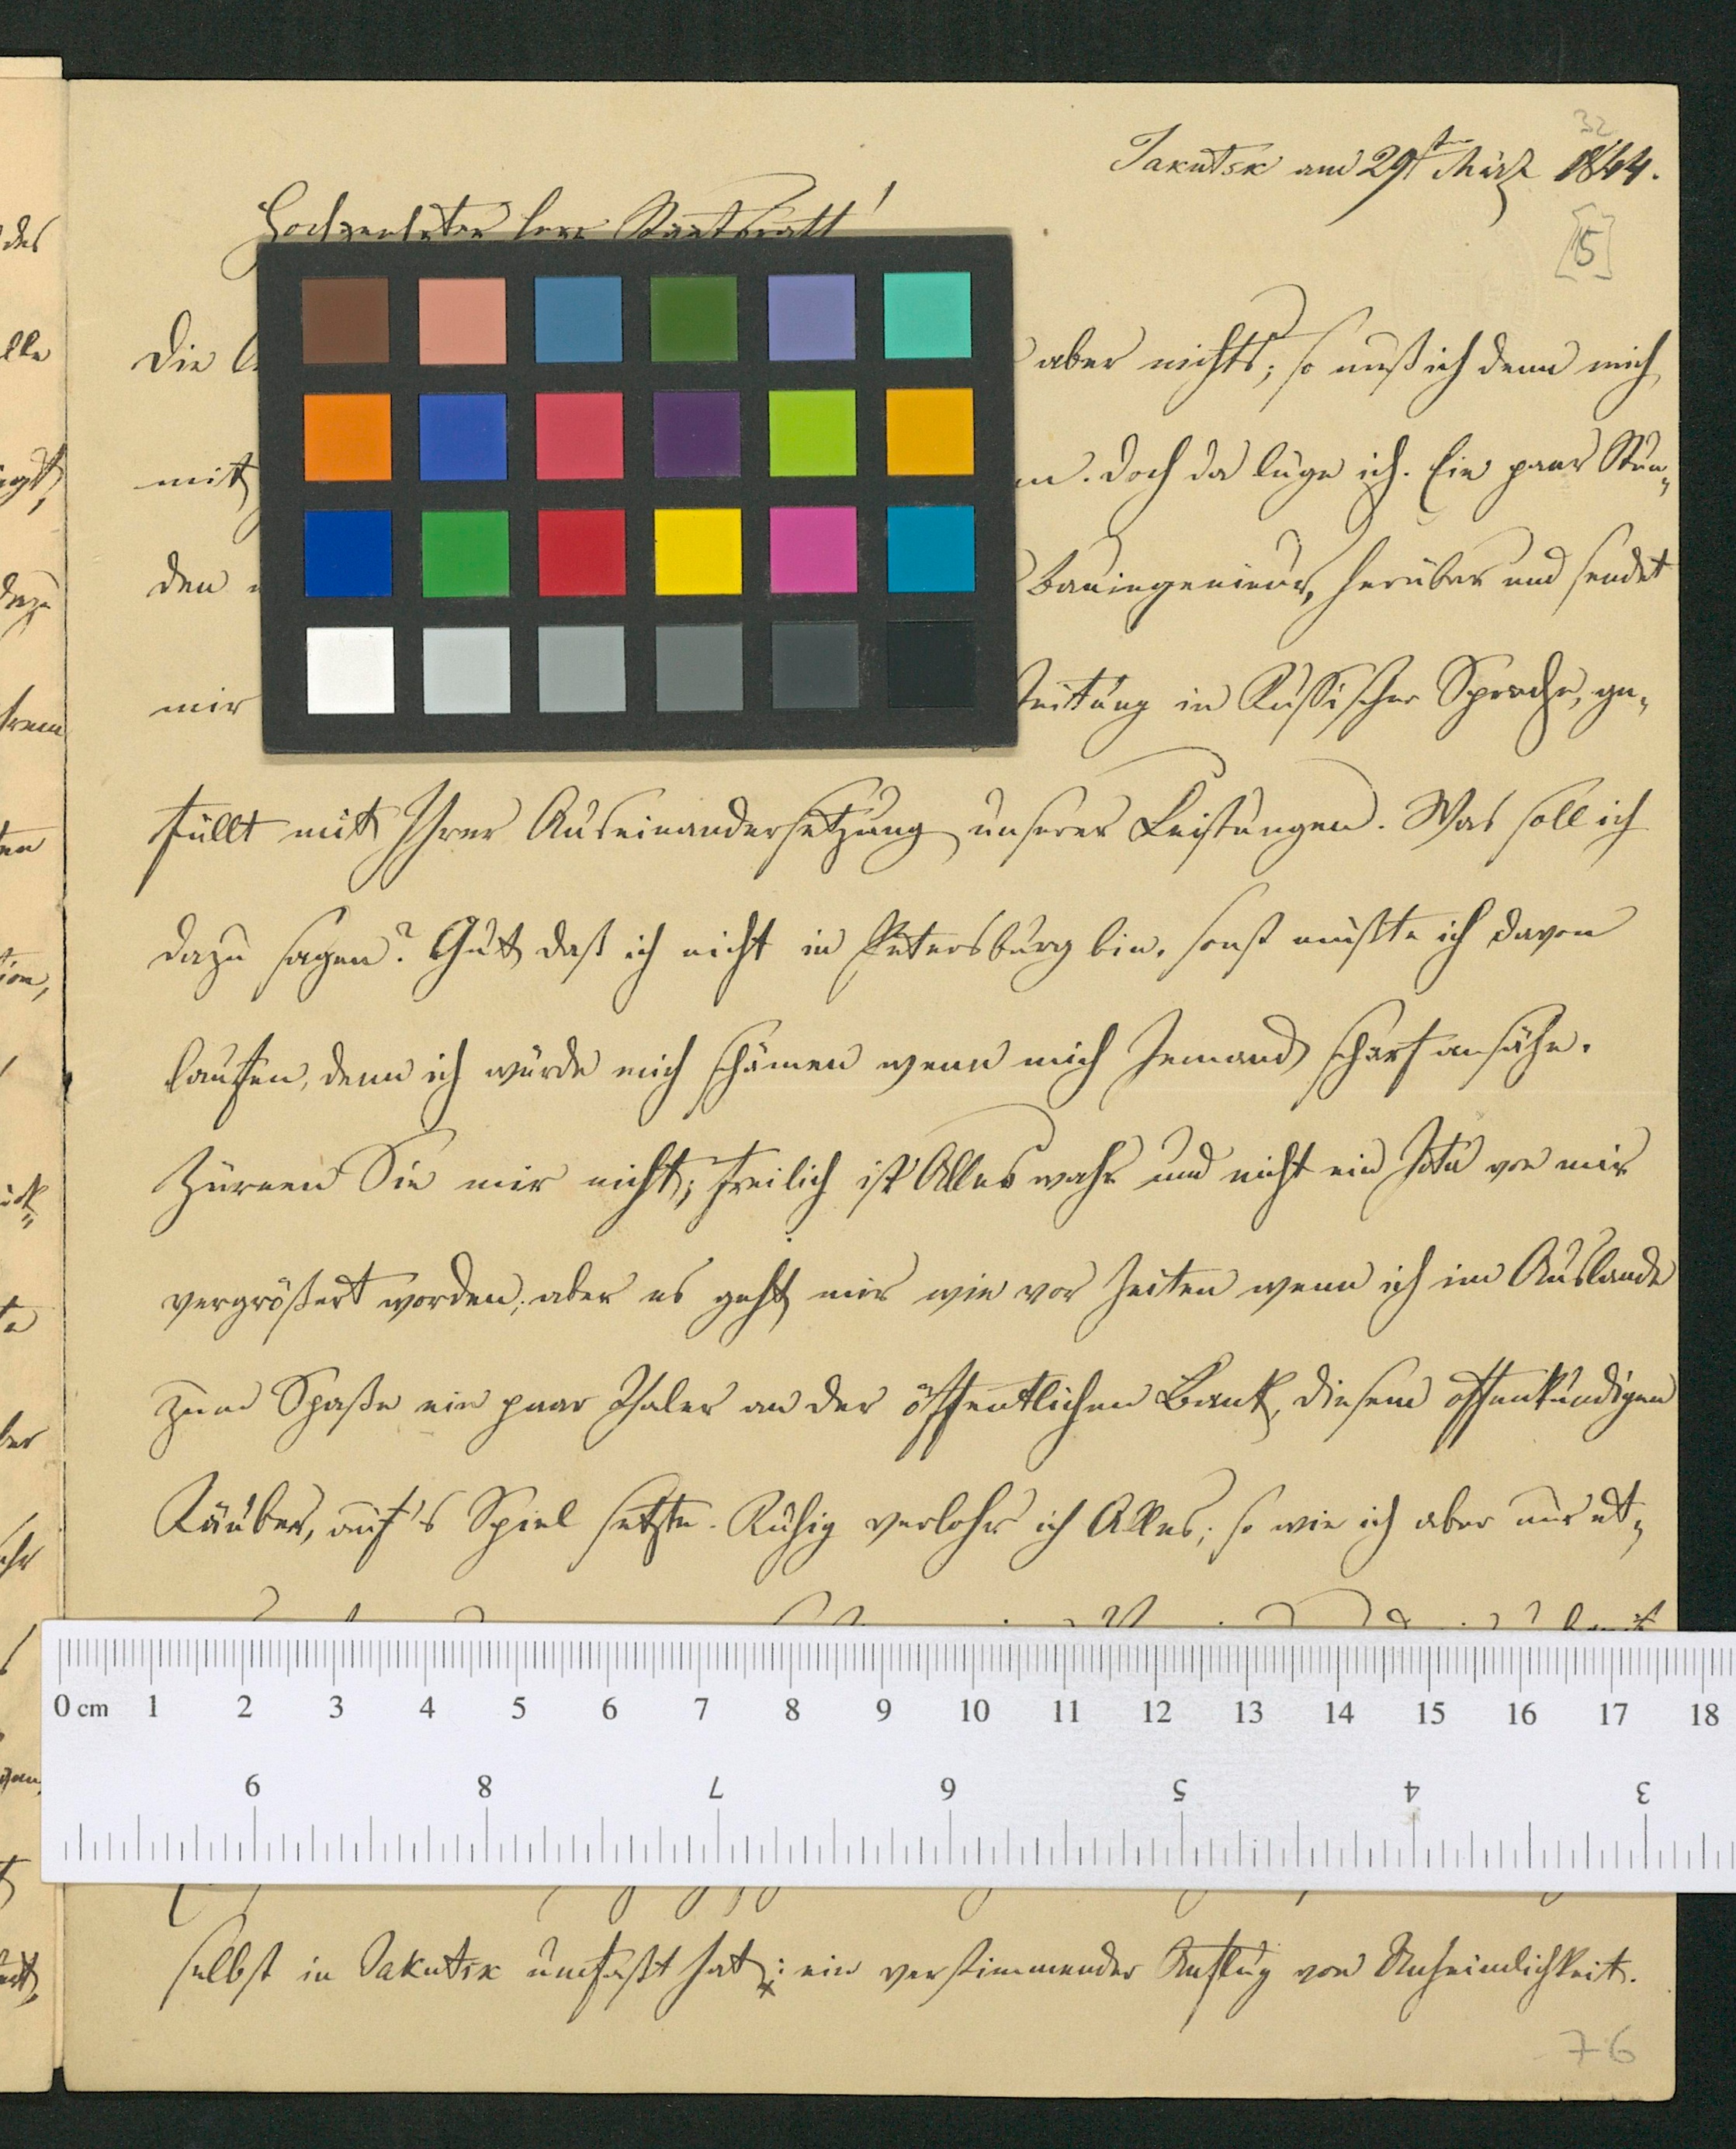 32
Jakutsk am 29sten März 1844.
Hochgeehrter Herr Staatsrath!
[5]
Die aber nichts; so muß ich denn mich
mit Doch da lüge ich. Ein paar Stun-
den Bauingenieur, herüber und sendet
mir Zeitung in Russischer Sprache, ge-
füllt mit Ihrer Auseinandersetzung unserer Leistungen. Was soll ich
dazu sagen? Gut daß ich nicht in Petersburg bin, sonst müßte ich davon
laufen, denn ich würde mich schämen wenn mich Jemand scharf ansähe.
Zürnen Sie mir nicht; freilich ist Alles wahr und nicht ein Jota von mir
vergrößert worden; aber es geht mir wie vor Zeiten wenn ich im Auslande
zum Spaße ein paar Thaler an der öffentlichen Bank, diesem offenkundigen
Räuber, auf's Spiel setzte. Ruhig verlohr ich Alles; so wie ich aber nur et-
0 cm 1 2 3 4 5 6 7 8 9 10 11 12 13 14 15 16 17 18
9 8 7 6 5 4 3
selbst in Jakutsk umfaßt hat: ein verstimmender Anflug von Unheimlichkeit.
76